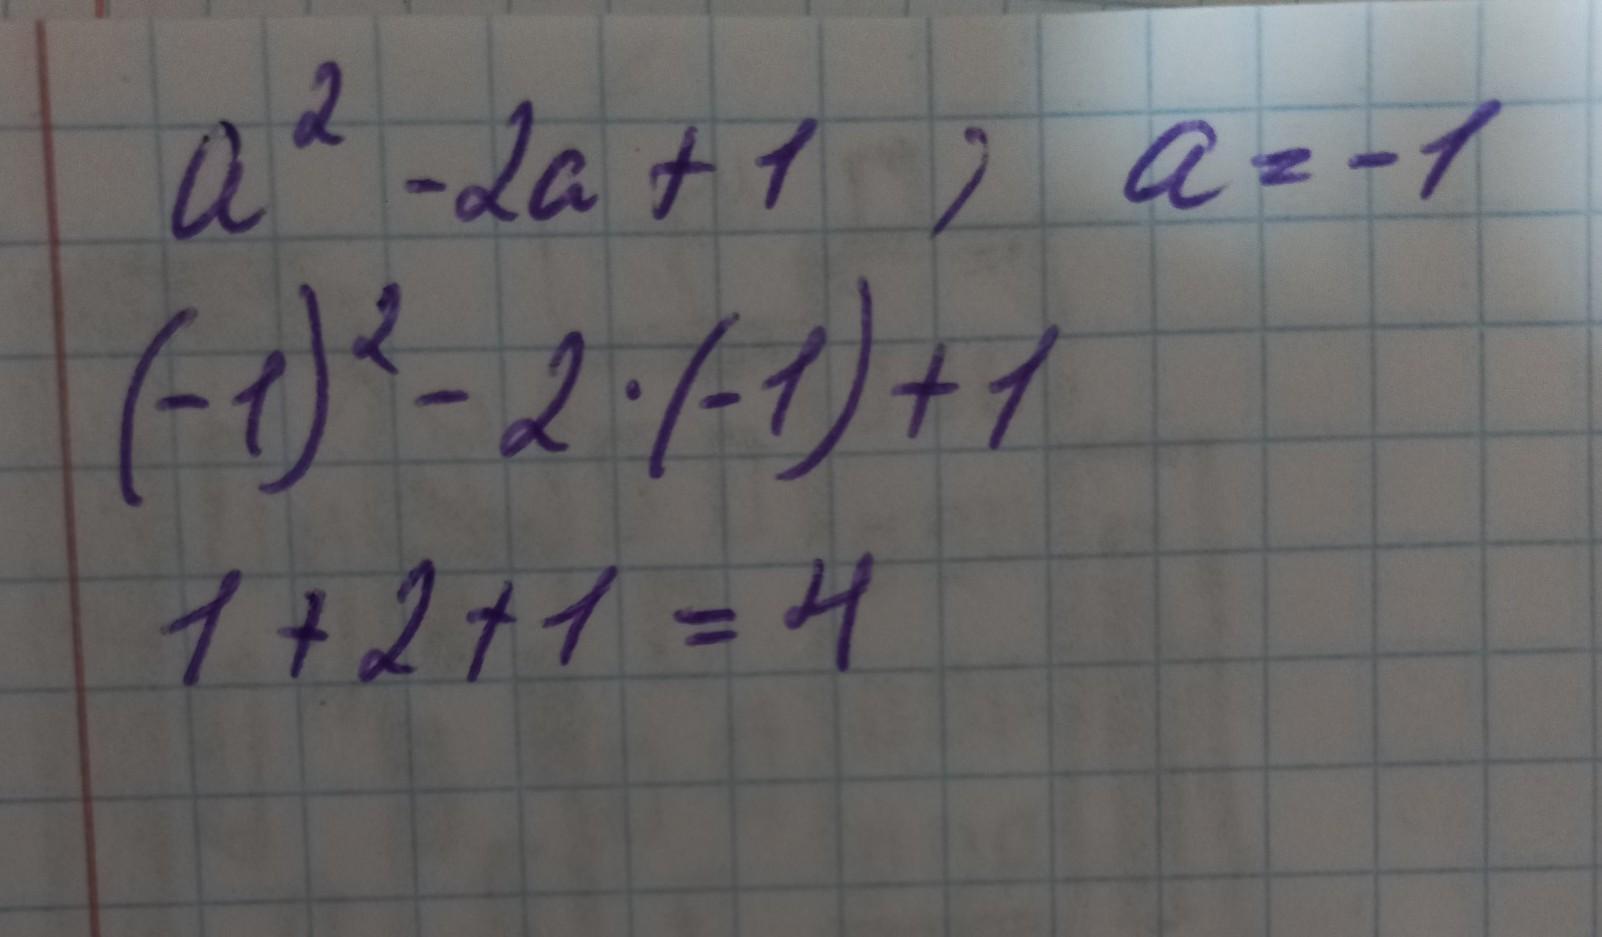 a² - 2a + 1 ; a = -1
(-1)² - 2 · (-1) + 1
1 + 2 + 1 = 4